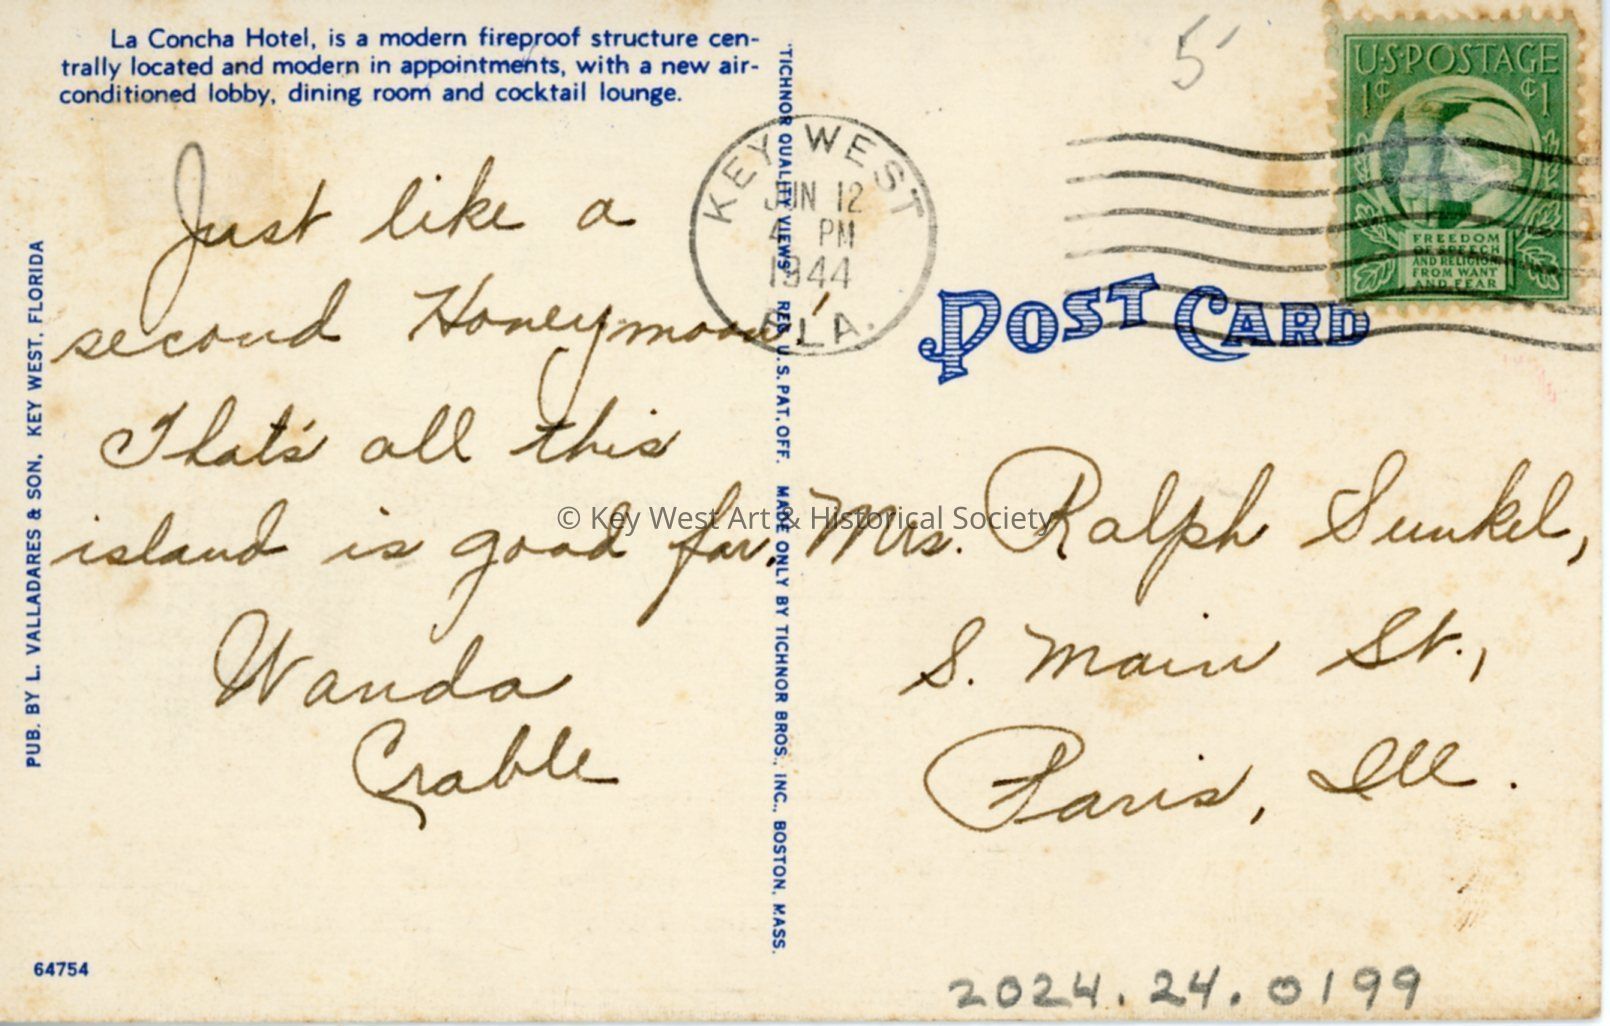 La Concha Hotel, is a modern fireproof structure cen-
trally located and modern in appointments, with a new air-
conditioned lobby, dining room and cocktail lounge.
Just like a
second Honeymoon!
That's all this
island is good for.
Wanda
Crable
PUB. BY L. VALLADARES & SON, KEY WEST, FLORIDA
64754
TICHNOR QUALITY VIEWS REG. U.S. PAT. OFF. MADE ONLY BY TICHNOR BROS., INC., BOSTON, MASS.
KEY WEST
JUN 12
4 PM
1944
FLA.
5
U·S·POSTAGE
1¢ ¢1
FREEDOM
OF SPEECH
AND RELIGION,
FROM WANT
AND FEAR
POST CARD
Mrs. Ralph Sunkel,
S. Main St.,
Paris, Ill.
© Key West Art & Historical Society
2024.24.0199